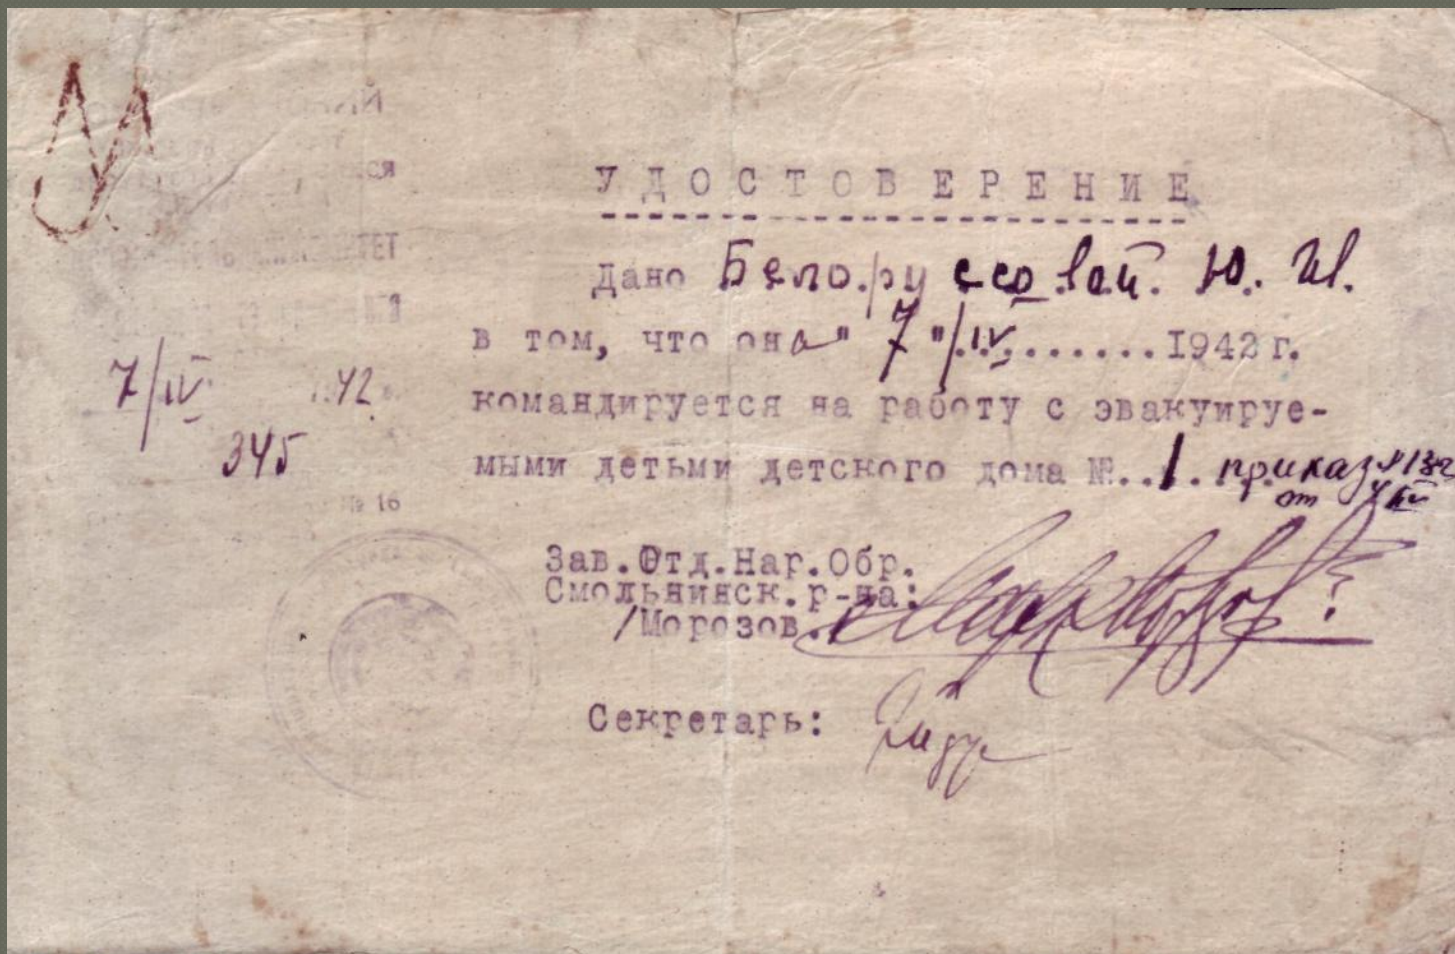 УДОСТОВЕРЕНИЕ
Дано Белоруссовой Ю. И.
в том, что она "7"/IV......... 1942 г.
7/IV 42
командируется на работу с эвакуируе-
345
мыми детьми детского дома №...1. приказ №
от
№ 16
Зав.Отд.Нар.Обр.
Смольнинск.р-на:
/Морозов.
Секретарь: